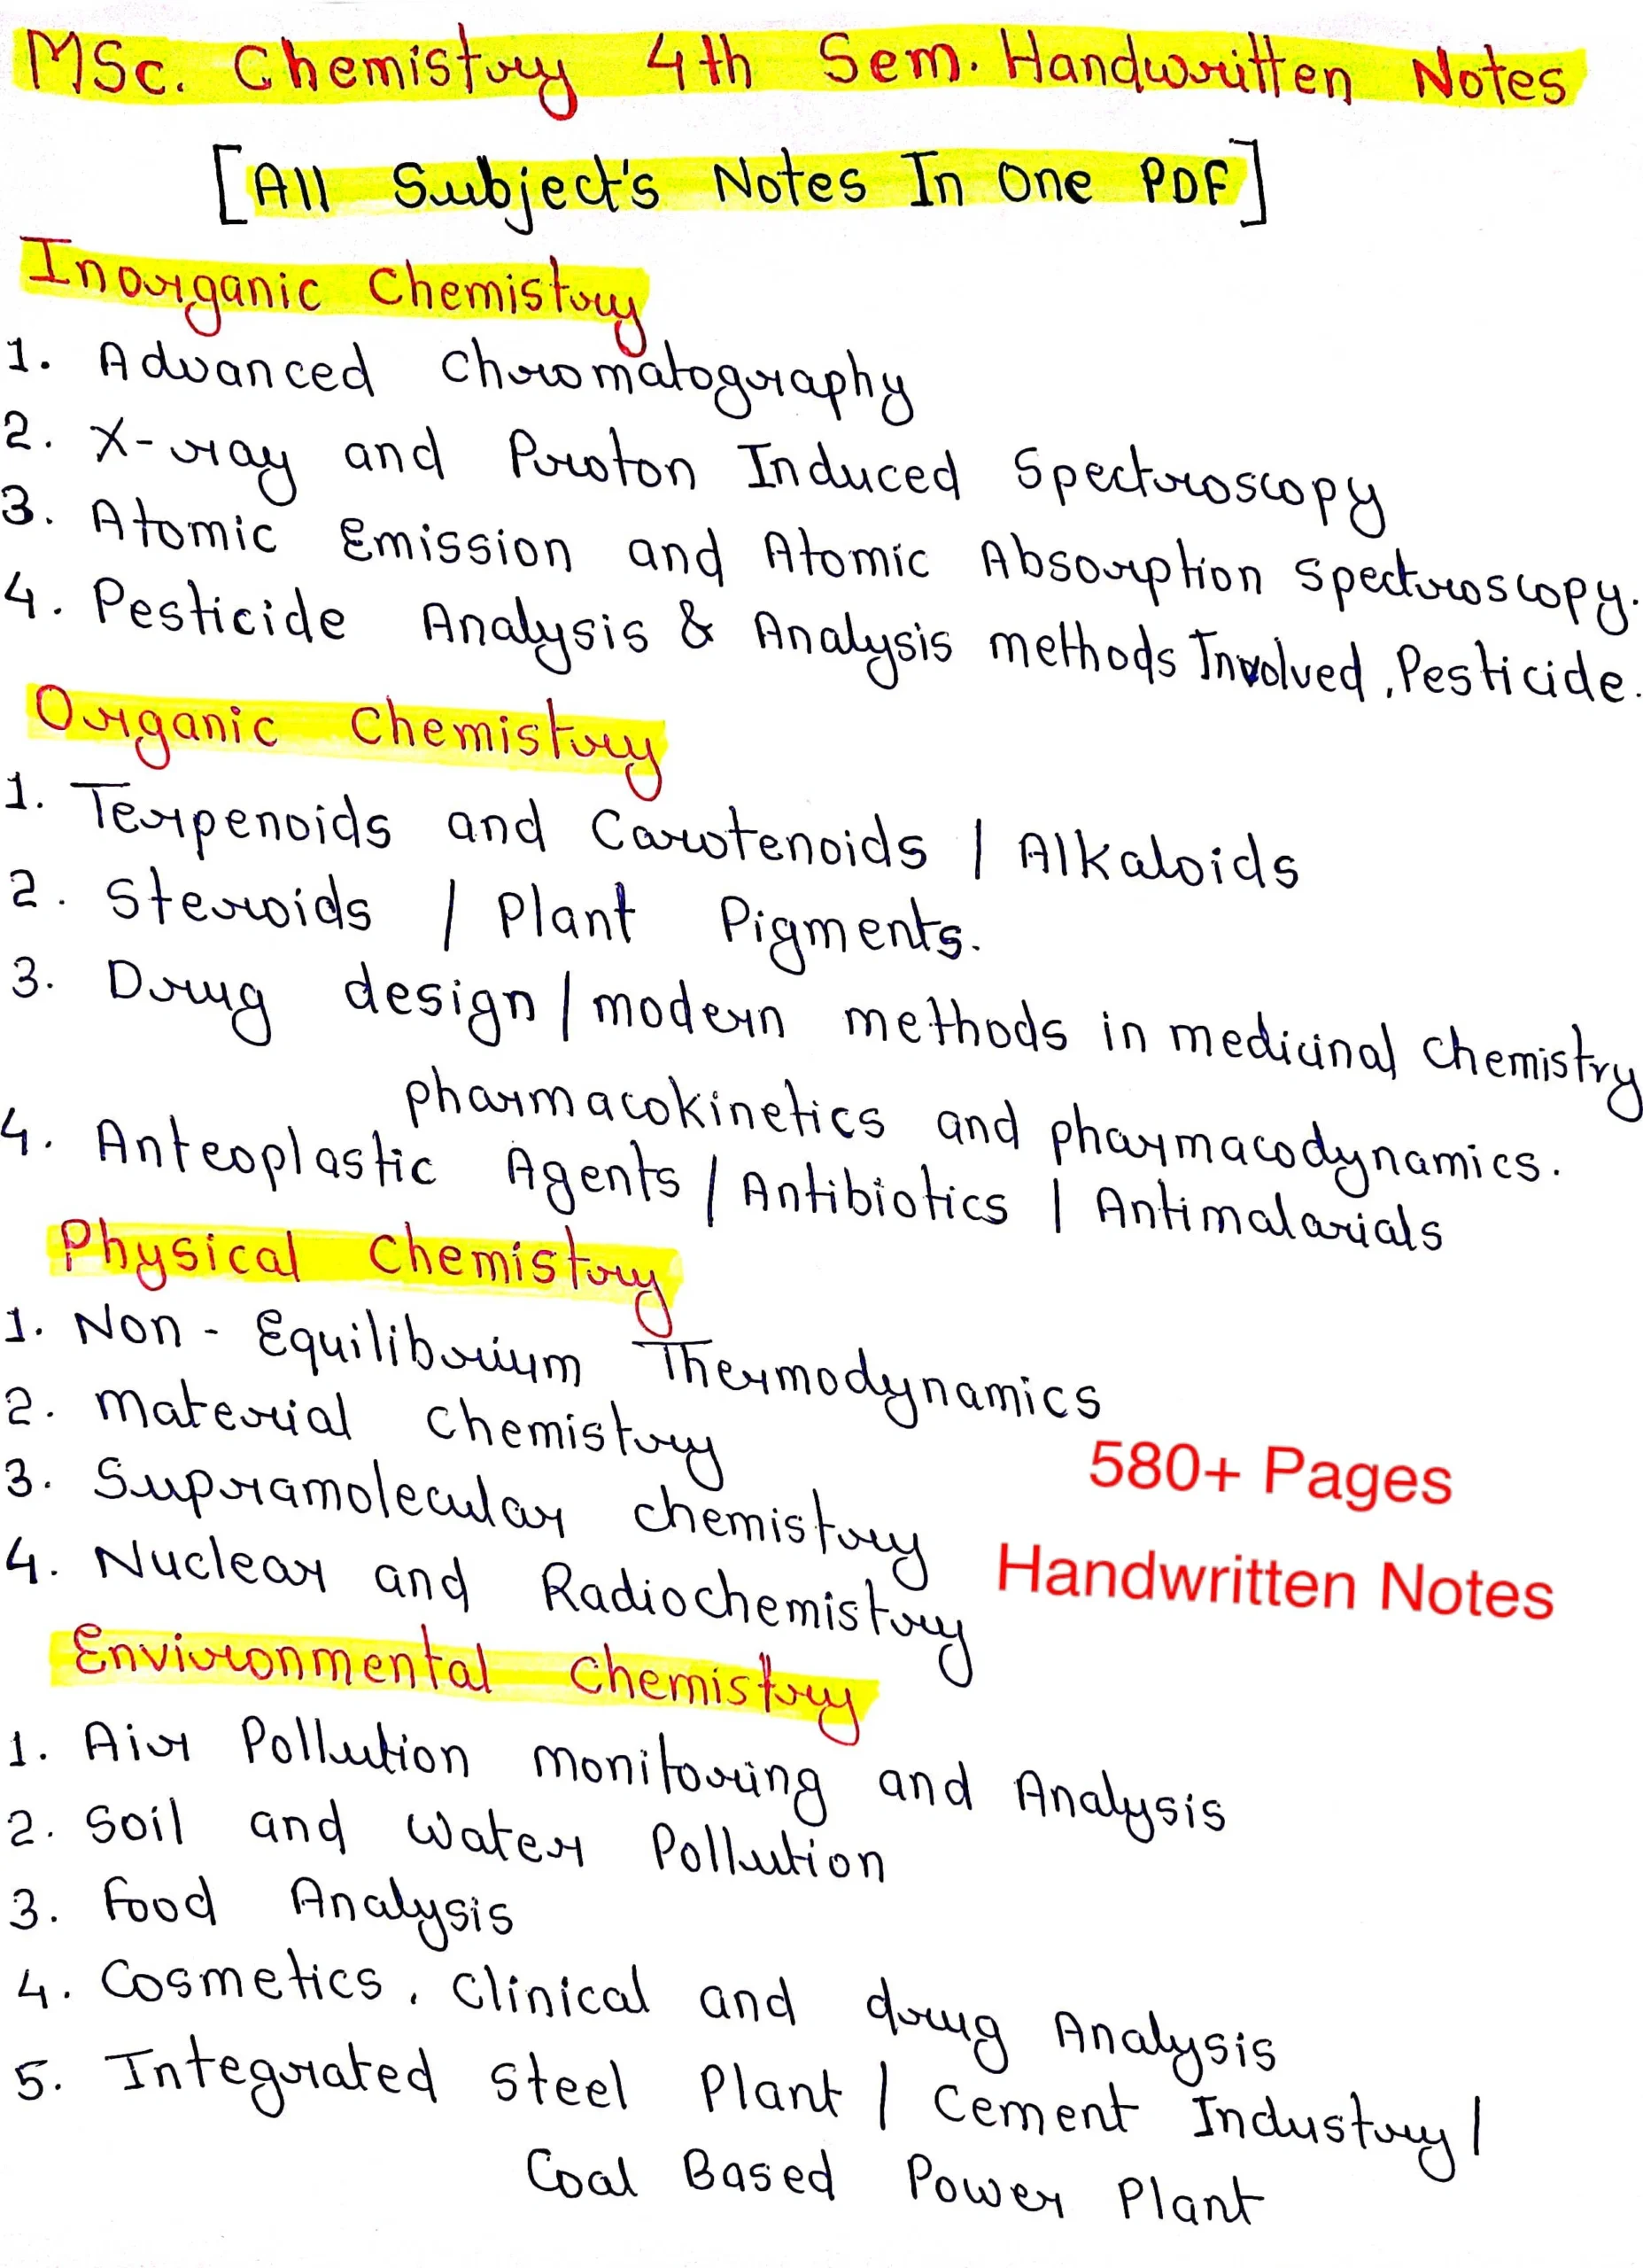 MSc. Chemistry 4th Sem. Handwritten Notes
[All Subject's Notes In One PDF]
Inorganic Chemistry
1. Advanced Chromatography
2. X-ray and Proton Induced Spectroscopy
3. Atomic Emission and Atomic Absorption Spectroscopy.
4. Pesticide Analysis & Analysis methods Involved, Pesticide.
Organic Chemistry
1. Terpenoids and Carotenoids / Alkaloids
2. Steroids / Plant Pigments.
3. Drug design / modern methods in medicinal chemistry
pharmacokinetics and pharmacodynamics.
4. Anteoplastic Agents / Antibiotics / Antimalarials
Physical Chemistry
1. Non - Equilibrium Thermodynamics
2. Material Chemistry
3. Supramolecular chemistry
4. Nuclear and Radiochemistry
580+ Pages
Handwritten Notes
Environmental Chemistry
1. Air Pollution monitoring and Analysis
2. Soil and Water Pollution
3. Food Analysis
4. Cosmetics, Clinical and drug Analysis
5. Integrated Steel Plant / Cement Industry /
Coal Based Power Plant